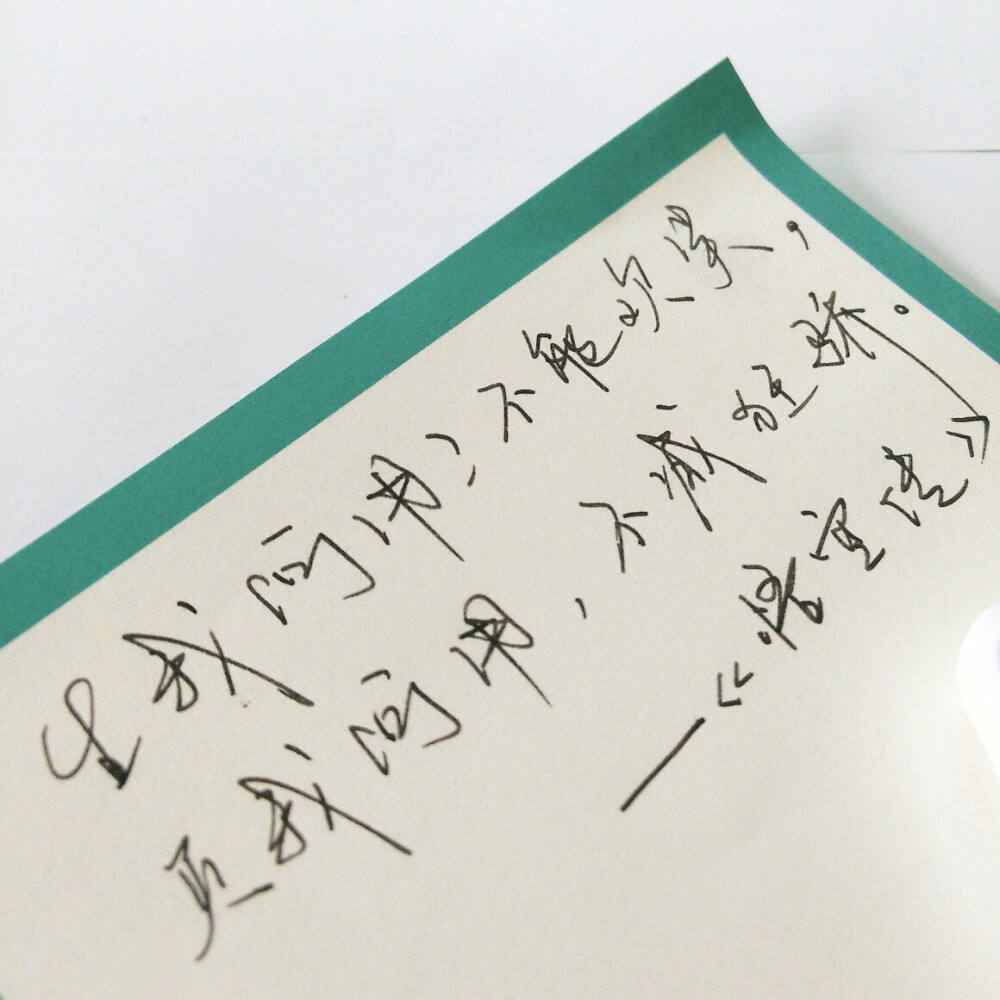 生我何用，不能欢笑，
灭我何用，不减狂骄。
—《悟空传》